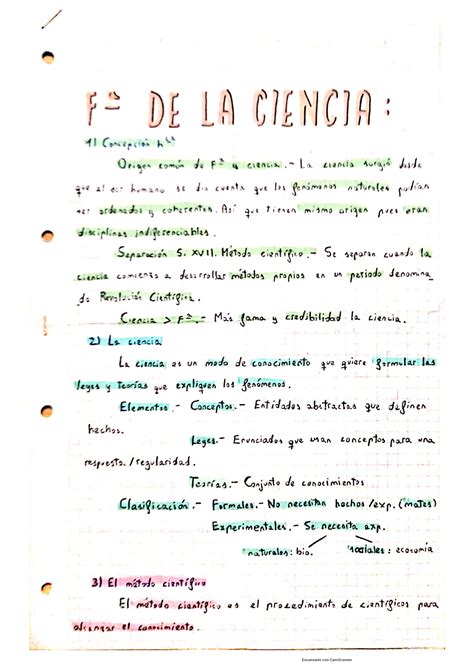 Fª DE LA CIENCIA:
1) Concepción hᶜᵃ
Origen común de Fª y ciencia.- La ciencia surgió desde
que el ser humano se dio cuenta que los fenómenos naturales podían
ser ordenados y coherentes. Así que tienen mismo origen pues eran
disciplinas indiferenciables.
Separación S. XVII. Método científico.- Se separan cuando la
ciencia comienza a desarrollar métodos propios en un periodo denomina
do Revolución Científica.
Ciencia > Fª.- Más fama y credibilidad la ciencia.
2) La ciencia
La ciencia es un modo de conocimiento que quiere formular las
leyes y Teorías que expliquen los fenómenos.
Elementos.- Conceptos.- Entidades abstractas que definen
hechos.
Leyes.- Enunciados que usan conceptos para una
respuesta/regularidad.
Teorías.- Conjunto de conocimientos
Clasificación.- Formales.- No necesitan hechos/exp. (mates)
Experimentales.- Se necesita exp.
naturales: bio. sociales: economía
3) El método científico
El método científico es el procedimiento de científicos para
alcanzar el conocimiento.
Escaneado con CamScanner